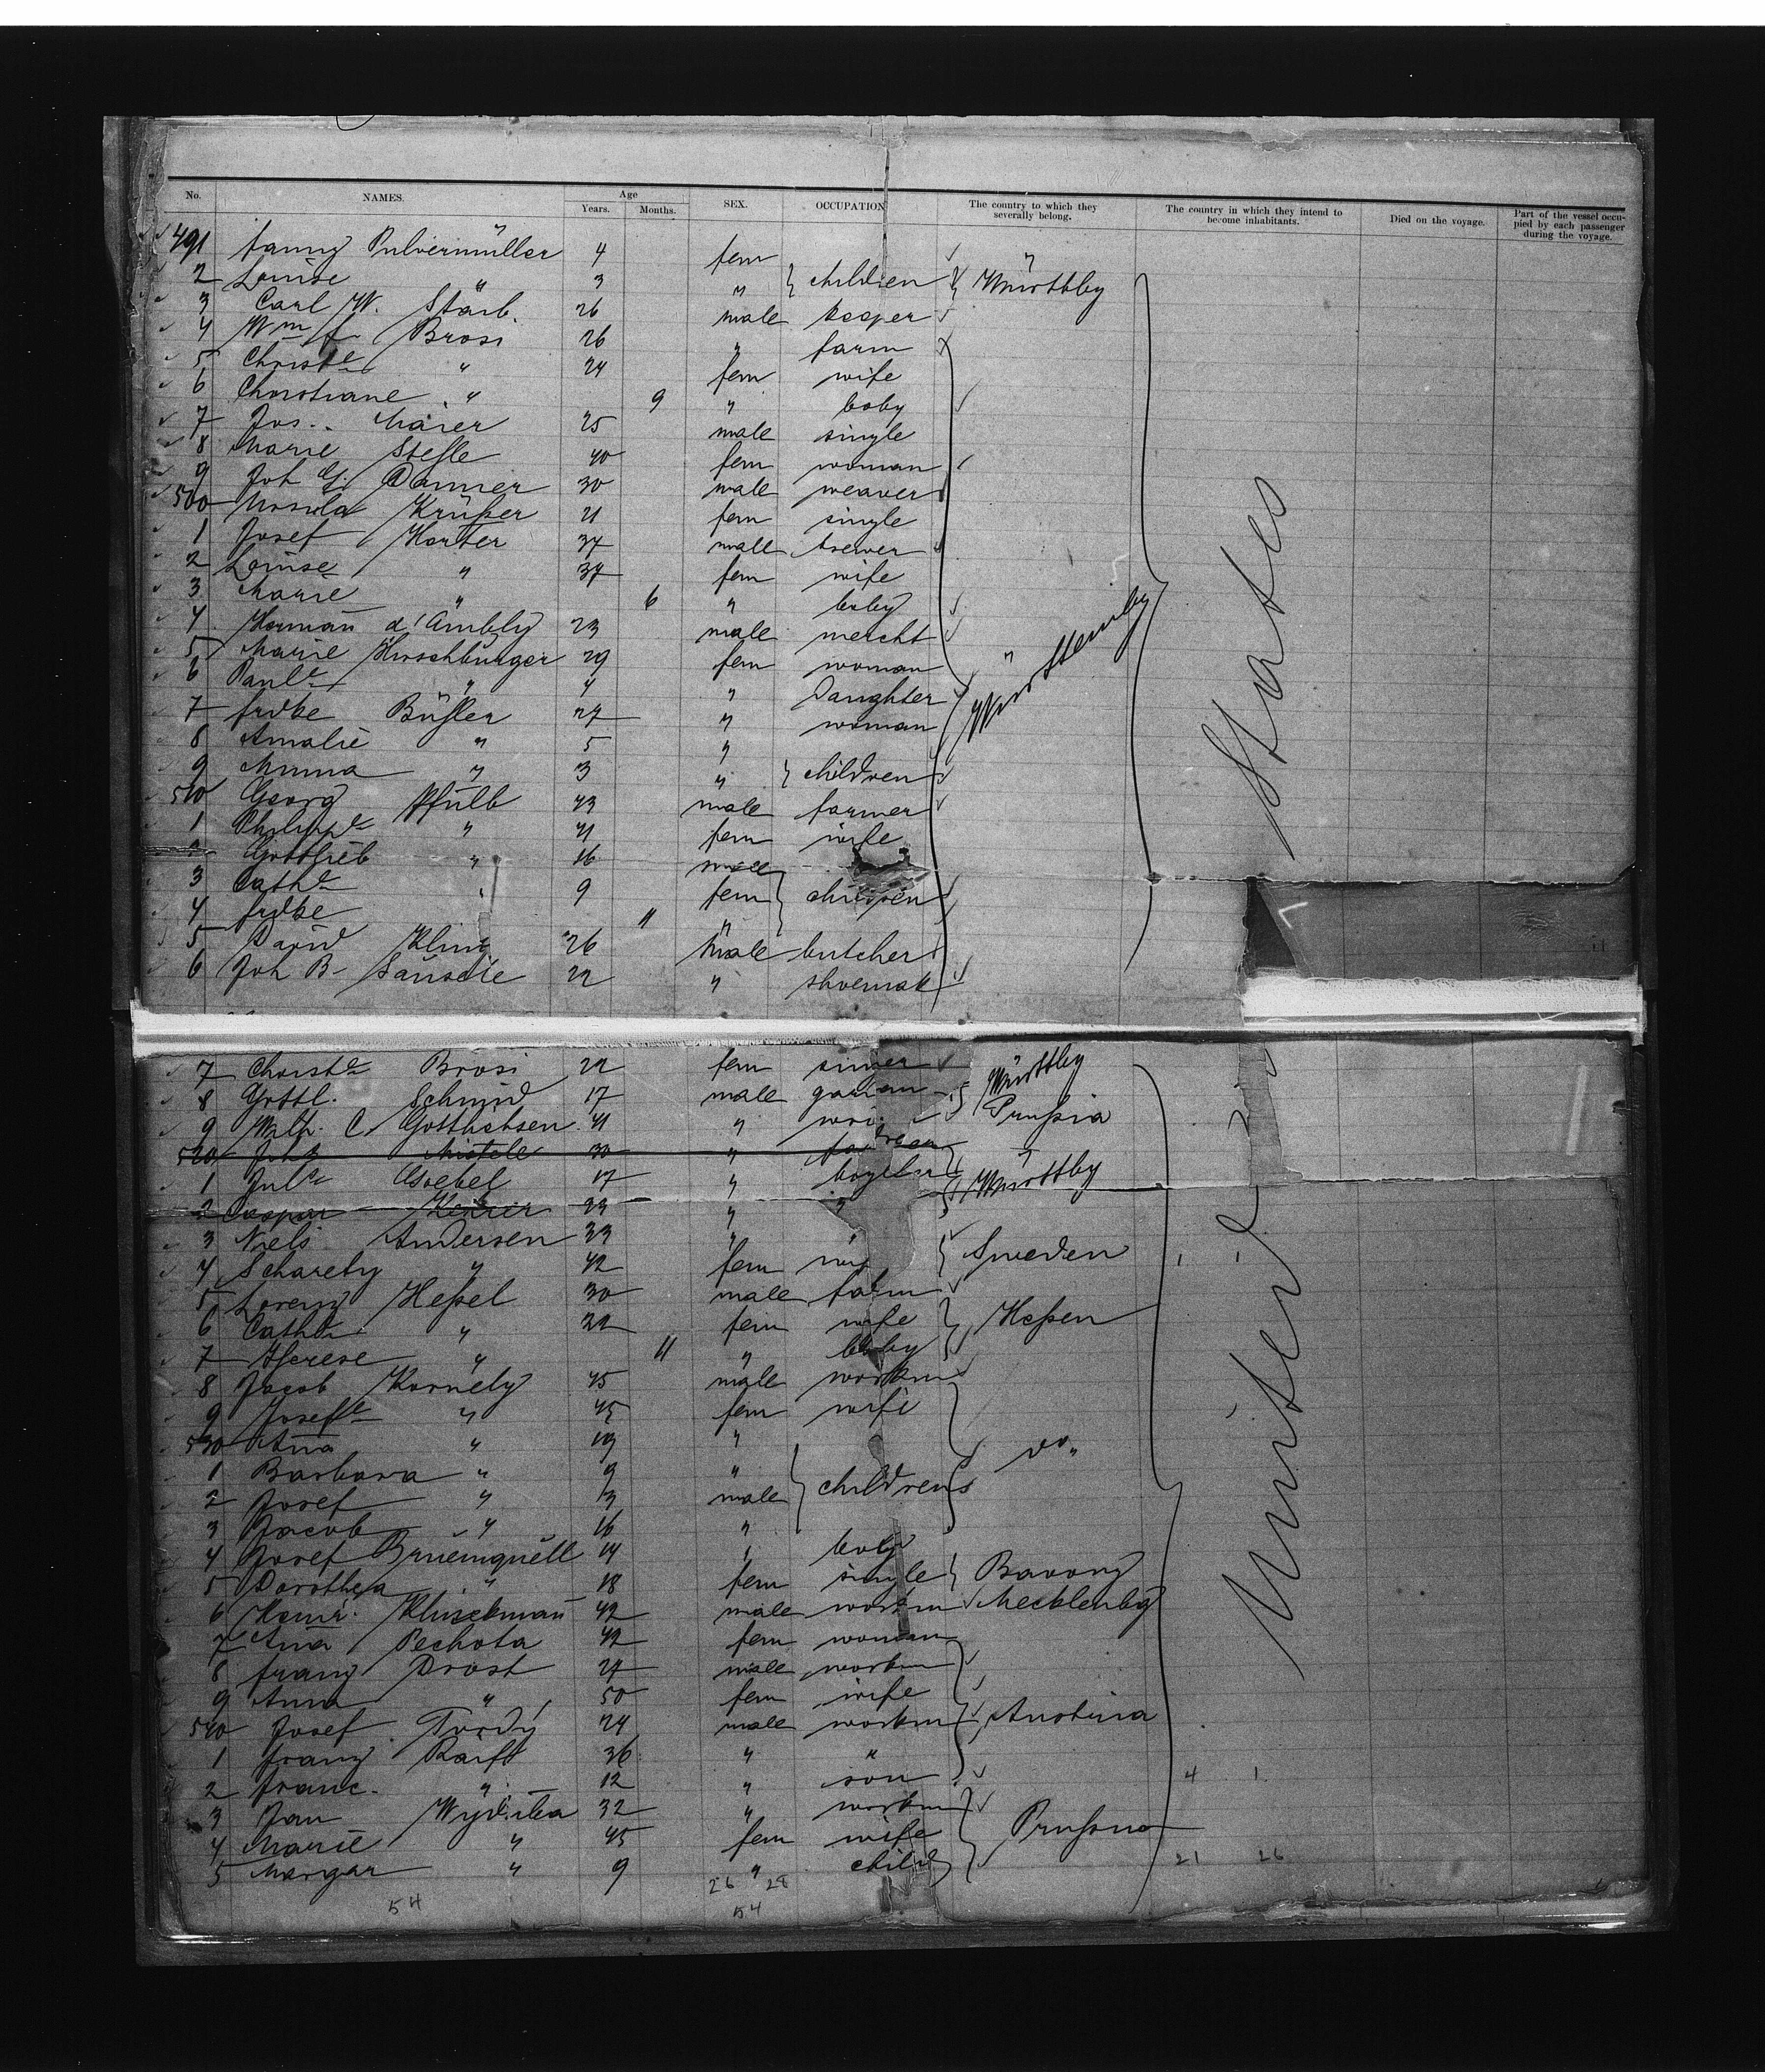 No. NAMES. Age Years. Months. SEX. OCCUPATION The country to which they severally belong. The country in which they intend to become inhabitants. Died on the voyage. Part of the vessel occupied by each passenger during the voyage.
491 Fanny Pulvermüller 4 fem
2 Louise " 3 " children Württbg
3 Carl W. Stärb. 26 male
4 Wm f. Brosi 26 " farm
5 Christe " 24 fem wife
6 Christiane " 9 " baby
7 Jos. Maier 25 male single
8 Marie 40 fem woman
9 Joh G. Danner 30 male weaver
500 Ursula Krüßer 21 fem single
1 Josef Harter 34 male brewer
2 Louise " 34 fem wife
3 Marie " 6 " baby
4 Herman d'Ambly 23 male mercht
5 Marie Hirschburger 29 fem woman Württemby
6 Paule " 4 " Daughter
7 frdke Büßler 27 " woman
8 Amalie " 5 "
9 Minna " 3 " children
510 Georg Pfülb 43 male farmer
1 Philippe " 41 fem wife
2 Gottlieb " 16 male
3 Cathe " 9 fem children
4 frdke 11 "
5 David Kling 26 male butcher
6 Joh B. 22 " shoemak
States
7 Christe Brosi 22 fem Württbg
8 Gottl. Schmid 17 male
9 Wilh. C. Gottliebsen 41 " Prußia
520 Joh Mistele 30 "
1 Jule Goebel 17 " Württbg
2 Caspar 23 " "
3 Niels Andersen 33 "
4 42 fem Sweden
5 Lorenz Heßel 30 male farm
6 Cathe " 22 fem wife Heßen
7 Therese " 11 " baby
8 Jacob Kornely 45 male workm
9 Josefe " 45 fem wife
530 Ana " 19 " do "
1 Barbara " 9 "
2 Josef " 13 male children
3 Jacob " 16 "
4 Josef Bruemquell 14 "
5 Dorothea " 18 fem single
6 Klinckman 42 male workm Mecklenbg
7 Ana Pechota 42 fem woman
8 franz Drost 27 male workm
9 Anna " 50 fem wife
540 Josef Tvrdy 24 male workm Austria
1 franz 36 " "
2 franc. " 12 " son 4 1
3 Jan 32 " workm
4 Marie " 45 fem wife
5 Margar " 9 " child 21 26
26 28
54 54
United